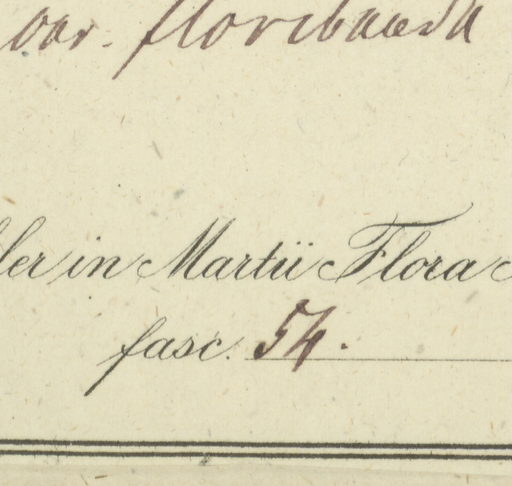 var. floribunda
ler in Martii Flora
fasc. 54.